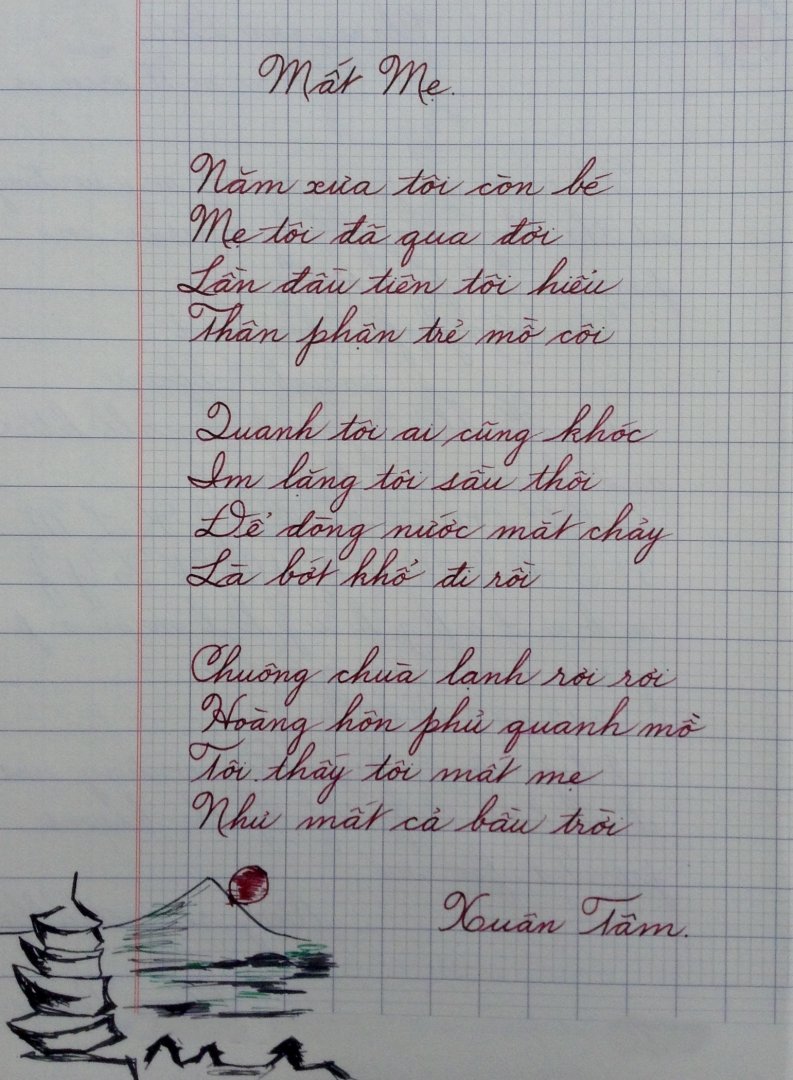 Mất Mẹ.
Năm xưa tôi còn bé
Mẹ tôi đã qua đời
Lần đầu tiên tôi hiểu
Thân phận trẻ mồ côi
Quanh tôi ai cũng khóc
Im lặng tôi sầu thôi
Để dòng nước mắt chảy
Là bớt khổ đi rồi
Chuông chùa lạnh rơi rơi
Hoàng hôn phủ quanh mồ
Tôi thấy tôi mất mẹ
Như mất cả bầu trời
Xuân Tâm.